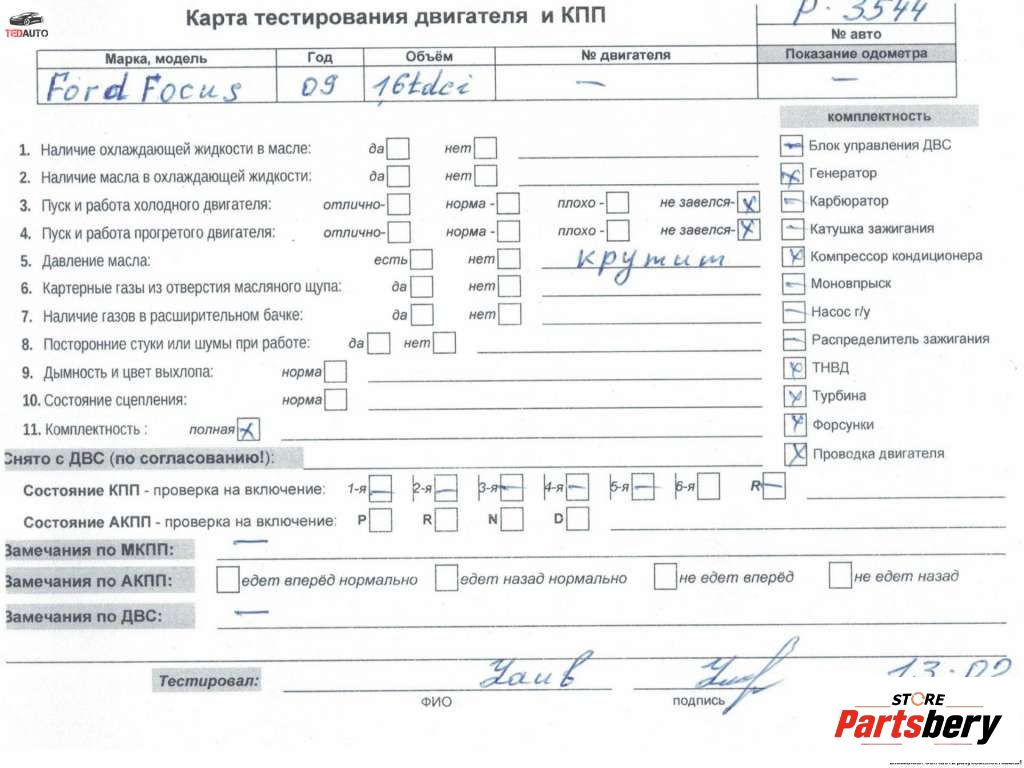 TEDAUTO
Карта тестирования двигателя и КПП
Р. 3544
№ авто
Марка, модель Год Объём № двигателя Показание одометра
Ford Focus 09 1,6tdci — —
комплектность
1. Наличие охлаждающей жидкости в масле: да нет
Блок управления ДВС
2. Наличие масла в охлаждающей жидкости: да нет
Генератор
3. Пуск и работа холодного двигателя: отлично- норма - плохо - не завелся-
Карбюратор
4. Пуск и работа прогретого двигателя: отлично- норма - плохо - не завелся-
Катушка зажигания
5. Давление масла: есть нет крутит
Компрессор кондиционера
6. Картерные газы из отверстия масляного щупа: да нет
Моновпрыск
7. Наличие газов в расширительном бачке: да нет
Насос г/у
8. Посторонние стуки или шумы при работе: да нет
Распределитель зажигания
9. Дымность и цвет выхлопа: норма
ТНВД
10. Состояние сцепления: норма
Турбина
11. Комплектность : полная
Форсунки
Снято с ДВС (по согласованию!):
Проводка двигателя
Состояние КПП - проверка на включение: 1-я 2-я 3-я 4-я 5-я 6-я R
Состояние АКПП - проверка на включение: P R N D
Замечания по МКПП: —
Замечания по АКПП: едет вперёд нормально едет назад нормально не едет вперёд не едет назад
Замечания по ДВС: —
Тестировал:
ФИО подпись
STORE
Partsbery